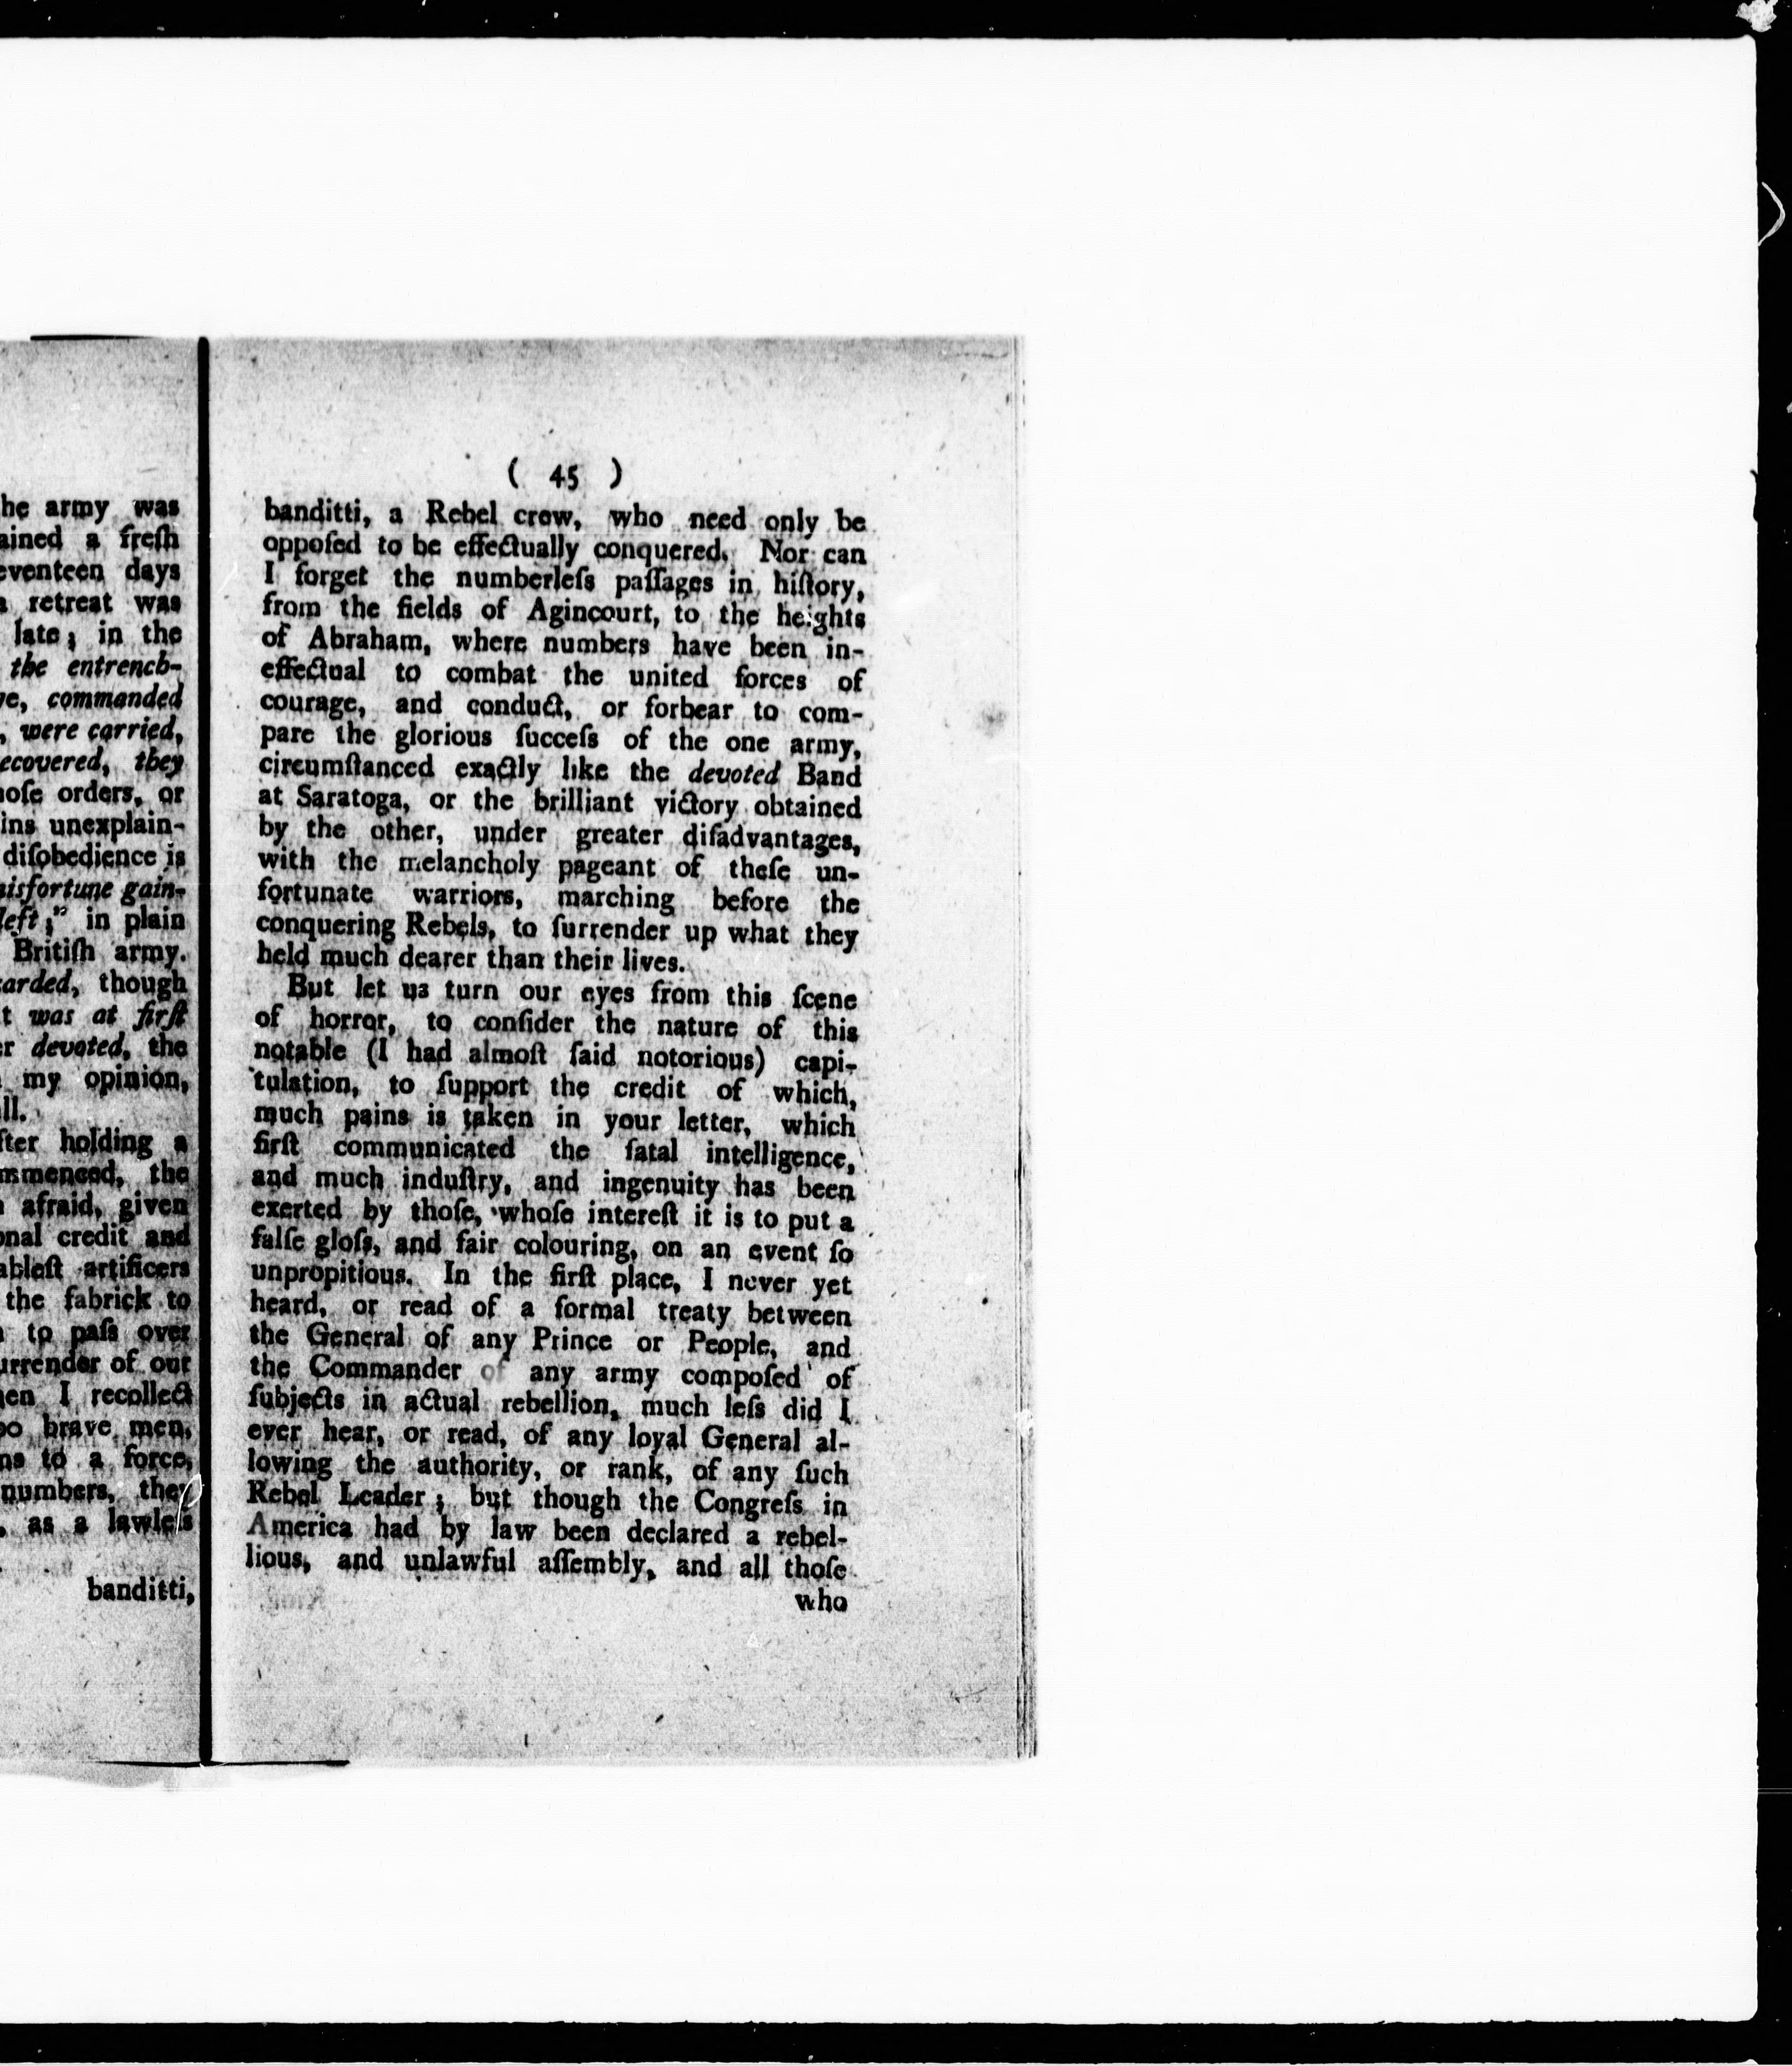 he army was
ained a freſh
eventeen days
retreat was
late; in the
the entrench-
ve, commanded
, were carried,
ecovered, they
hoſe orders, or
ins unexplain-
diſobedience is
misfortune gain-
left;" in plain
Britiſh army.
carded, though
t was at firſt
er devoted, the
my opinion,
ll.
fter holding a
mmenced, the
afraid, given
onal credit and
ableſt artificers
the fabrick to
to paſs over
urrender of our
hen I recollect
oo brave men,
ns to a force,
numbers, they
, as a lawleſs
banditti,
( 45 )
banditti, a Rebel crew, who need only be
oppoſed to be effectually conquered. Nor can
I forget the numberleſs paſſages in hiſtory,
from the fields of Agincourt, to the heights
of Abraham, where numbers have been in-
effectual to combat the united forces of
courage, and conduct, or forbear to com-
pare the glorious ſucceſs of the one army,
circumſtanced exactly like the devoted Band
at Saratoga, or the brilliant victory obtained
by the other, under greater diſadvantages,
with the melancholy pageant of theſe un-
fortunate warriors, marching before the
conquering Rebels, to ſurrender up what they
held much dearer than their lives.
But let us turn our eyes from this ſcene
of horror, to conſider the nature of this
notable (I had almoſt ſaid notorious) capi-
tulation, to ſupport the credit of which,
much pains is taken in your letter, which
firſt communicated the fatal intelligence,
and much induſtry, and ingenuity has been
exerted by thoſe, whoſe intereſt it is to put a
falſe gloſs, and fair colouring, on an event ſo
unpropitious. In the firſt place, I never yet
heard, or read of a formal treaty between
the General of any Prince or People, and
the Commander of any army compoſed of
ſubjects in actual rebellion, much leſs did I
ever hear, or read, of any loyal General al-
lowing the authority, or rank, of any ſuch
Rebel Leader; but though the Congreſs in
America had by law been declared a rebel-
lious, and unlawful aſſembly, and all thoſe
who